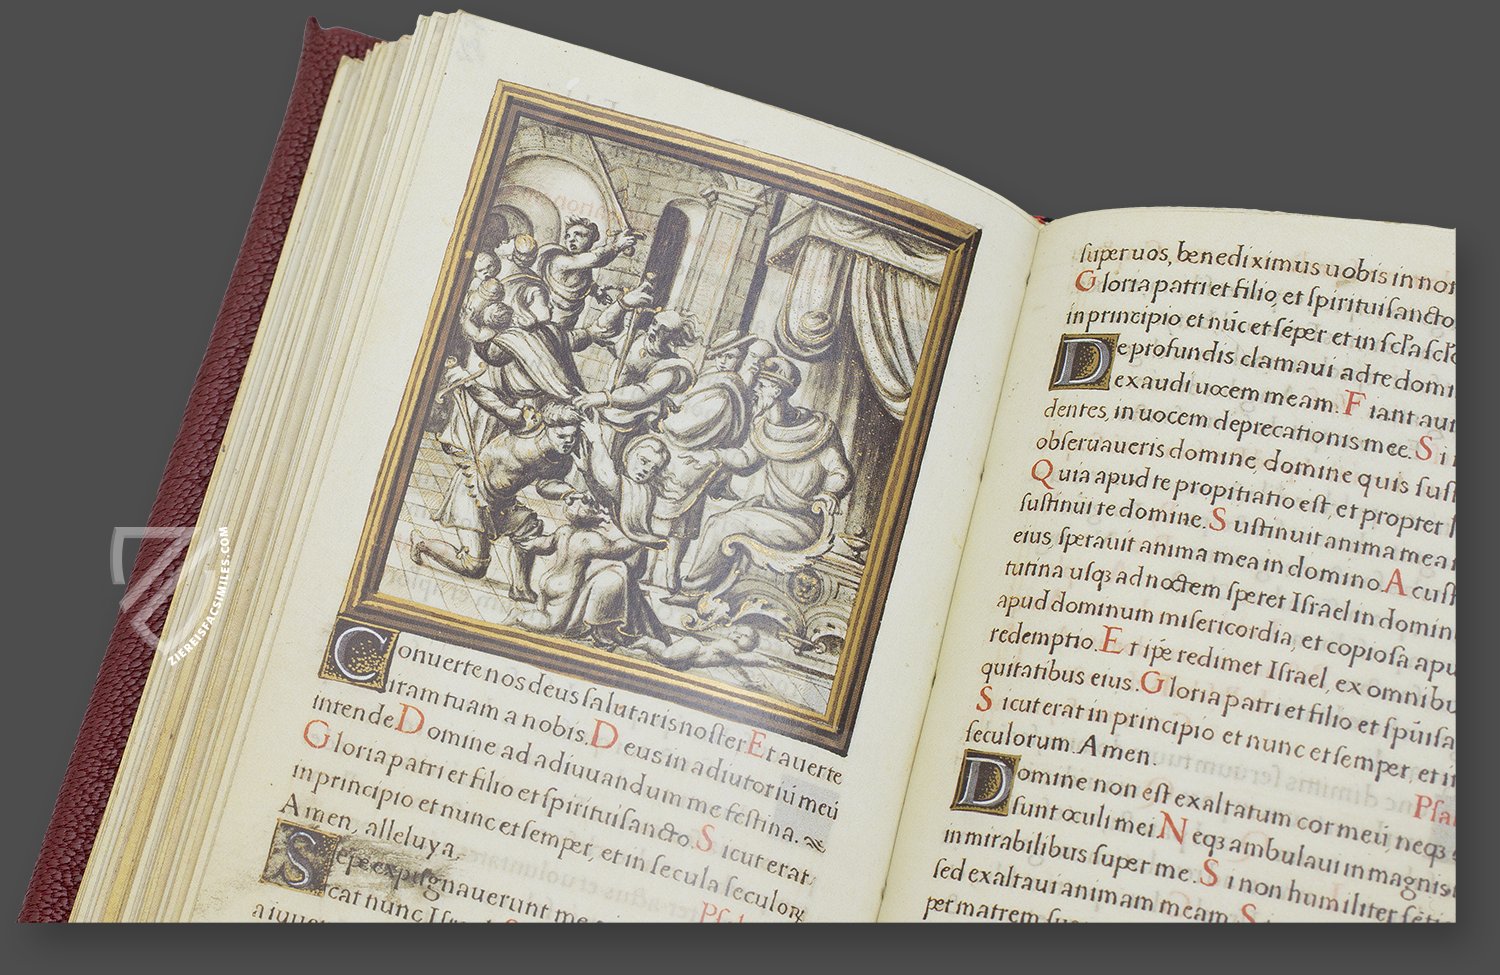 Conuerte nos deus salutaris noster Et auerte
iram tuam a nobis. Deus in adiutoriū meū
intende Domine ad adiuuandum me festina.
Gloria patri et filio et spiritui sancto. Sicut erat
in principio et nunc et semper, et in secula seculorꝝ
Amen, alleluya.
Sepe expugnauerunt me
cat nunc
super uos, benediximus uobis in
Gloria patri et filio, et spiritui sancto
in principio et nūc et sēper et in
De profundis clamaui ad te
exaudi uocem meam. Fiant
dentes, in uocem deprecationis mee. Si
obseruaueris domine, domine quis
Quia apud te propitiatio est, et propter
sustinui te domine. Sustinuit anima mea
eius, sperauit anima mea in domino. A
tutina usqꝫ ad noctem speret Israel in
apud dominum misericordia, et copiosa
redemptio. Et ipse redimet Israel, ex
quitatibus eius. Gloria patri et filio et
Sicut erat in principio et nunc et semper, et
seculorum Amen
Domine non est exaltatum cor meū, neqꝫ
sunt oculi mei. Neqꝫ ambulaui in
in mirabilibus super me. Si non humiliter
sed exaltaui animam meam. S
per matrem
ZIEREISFACSIMILES.COM